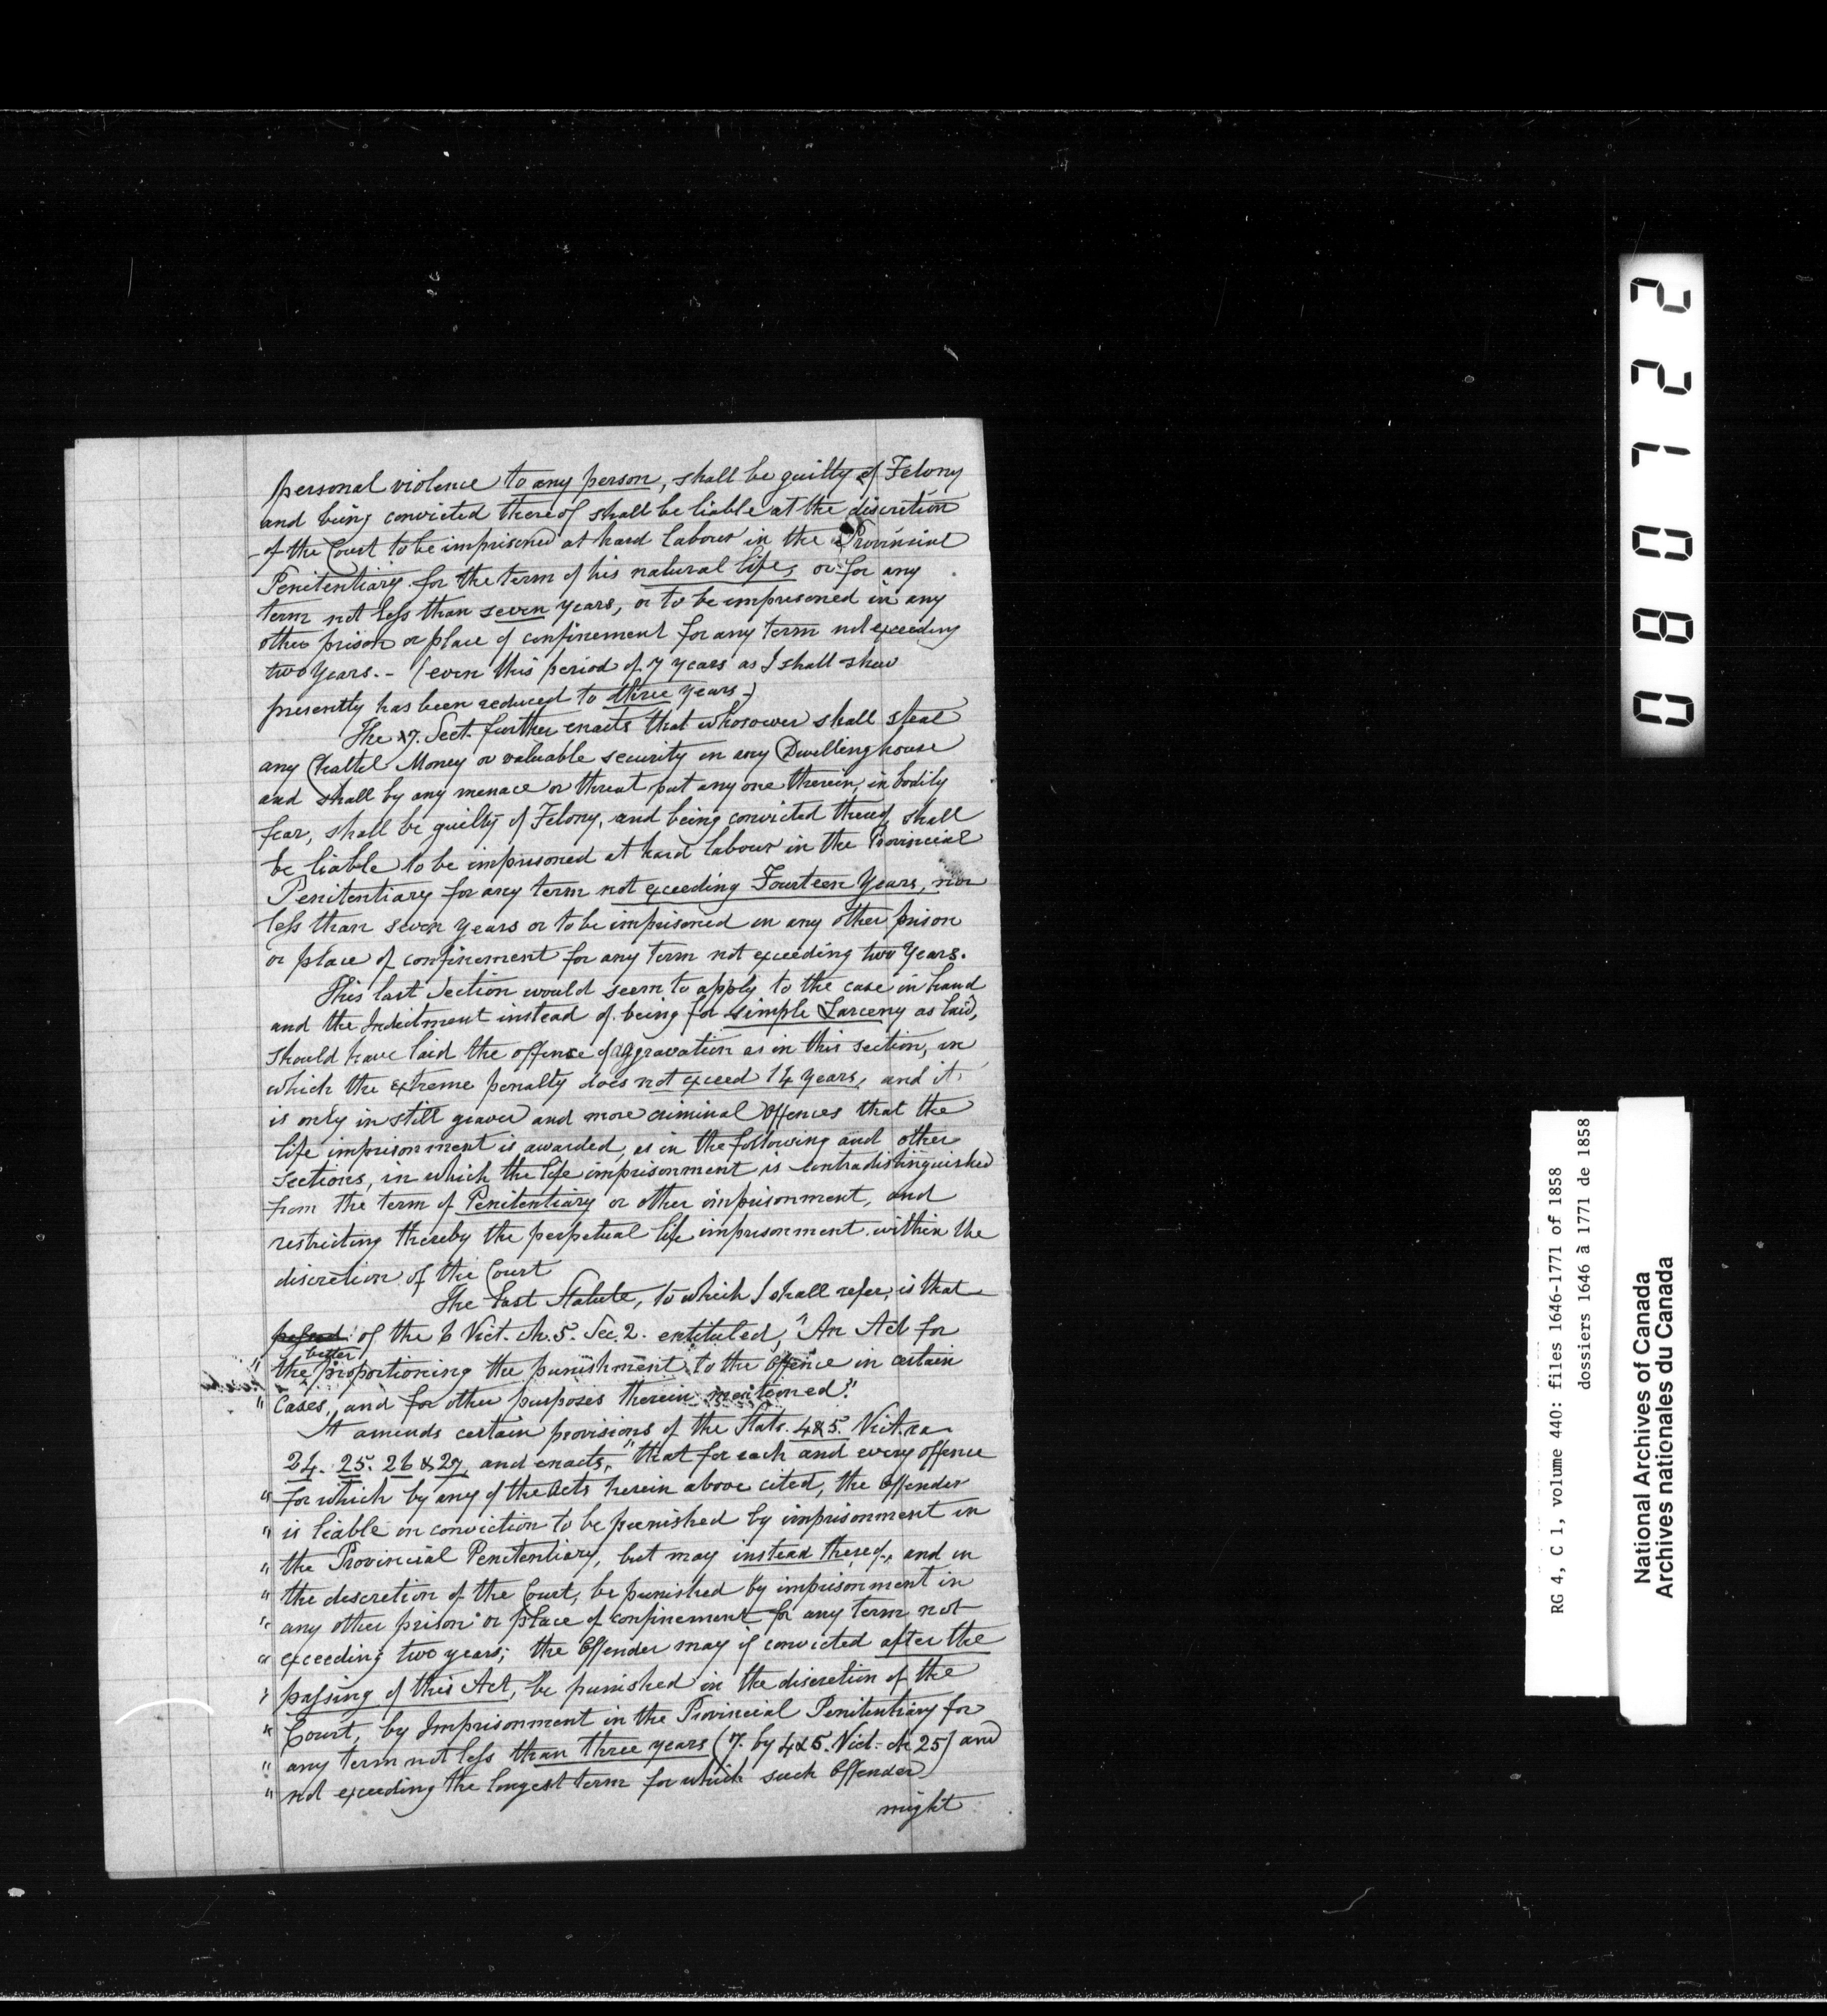 personal violence to any person, shall be guilty of Felony
and being convicted thereof shall be liable at the discretion
of the Court to be imprisoned at hard labour in the Provincial
Penitentiary for the term of his natural life, or for any
term not less than seven years, or to be imprisoned in any
other prison or place of confinement for any term not exceeding
two years. - (even this period of 7 years as I shall shew
presently has been reduced to three years -)
The 17. Sect. further enacts that whosoever shall steal
any Chattel Money or valuable security in any Dwelling house
and shall by any menace or threat put any one therein, in bodily
fear, shall be guilty of Felony, and being convicted thereof shall
be liable to be imprisoned at hard labour in the Provincial
Penitentiary for any term not exceeding Fourteen Years, nor
less than seven years or to be imprisoned in any other prison
or place of confinement for any term not exceeding two Years.
This last Section would seem to apply to the case in hand
and the Indictment instead of being for simple Larceny as laid,
should have laid the offence of aggravation as in this section, in
which the extreme penalty does not exceed 14 years, and it
is only in still graver and more criminal offences that the
life imprisonment is awarded, as in the following and other
sections, in which the life imprisonment is contradistinguished
from the term of Penitentiary or other imprisonment, and
restricting thereby the perpetual life imprisonment within the
discretion of the Court
The last Statute, to which I shall refer, is that
passed of the 6 Vict. ch. 5. Sec. 2. entituled, "An Act for
" the better proportioning the punishment to the offence in certain
" Cases, and for other purposes therein mentioned."
It amends certain provisions of the Stats. 4&5. Vict. ca
24. 25. 26 & 27, and enacts, "that for each and every offence
" for which by any of the Acts herein above cited, the Offender
" is liable on conviction to be punished by imprisonment in
" the Provincial Penitentiary, but may instead thereof, and in
" the discretion of the Court, be punished by imprisonment in
" any other prison or place of confinement for any term not
" exceeding two years; the Offender may if convicted after the
" passing of this Act, be punished in the discretion of the
" Court, by Imprisonment in the Provincial Penitentiary for
" any term not less than three years (7. by 4&5. Vict. ch 25) and
" not exceeding the longest term for which such Offender
might
080722
RG 4, C 1, volume 440: files 1646-1771 of 1858
dossiers 1646 à 1771 de 1858
National Archives of Canada
Archives nationales du Canada